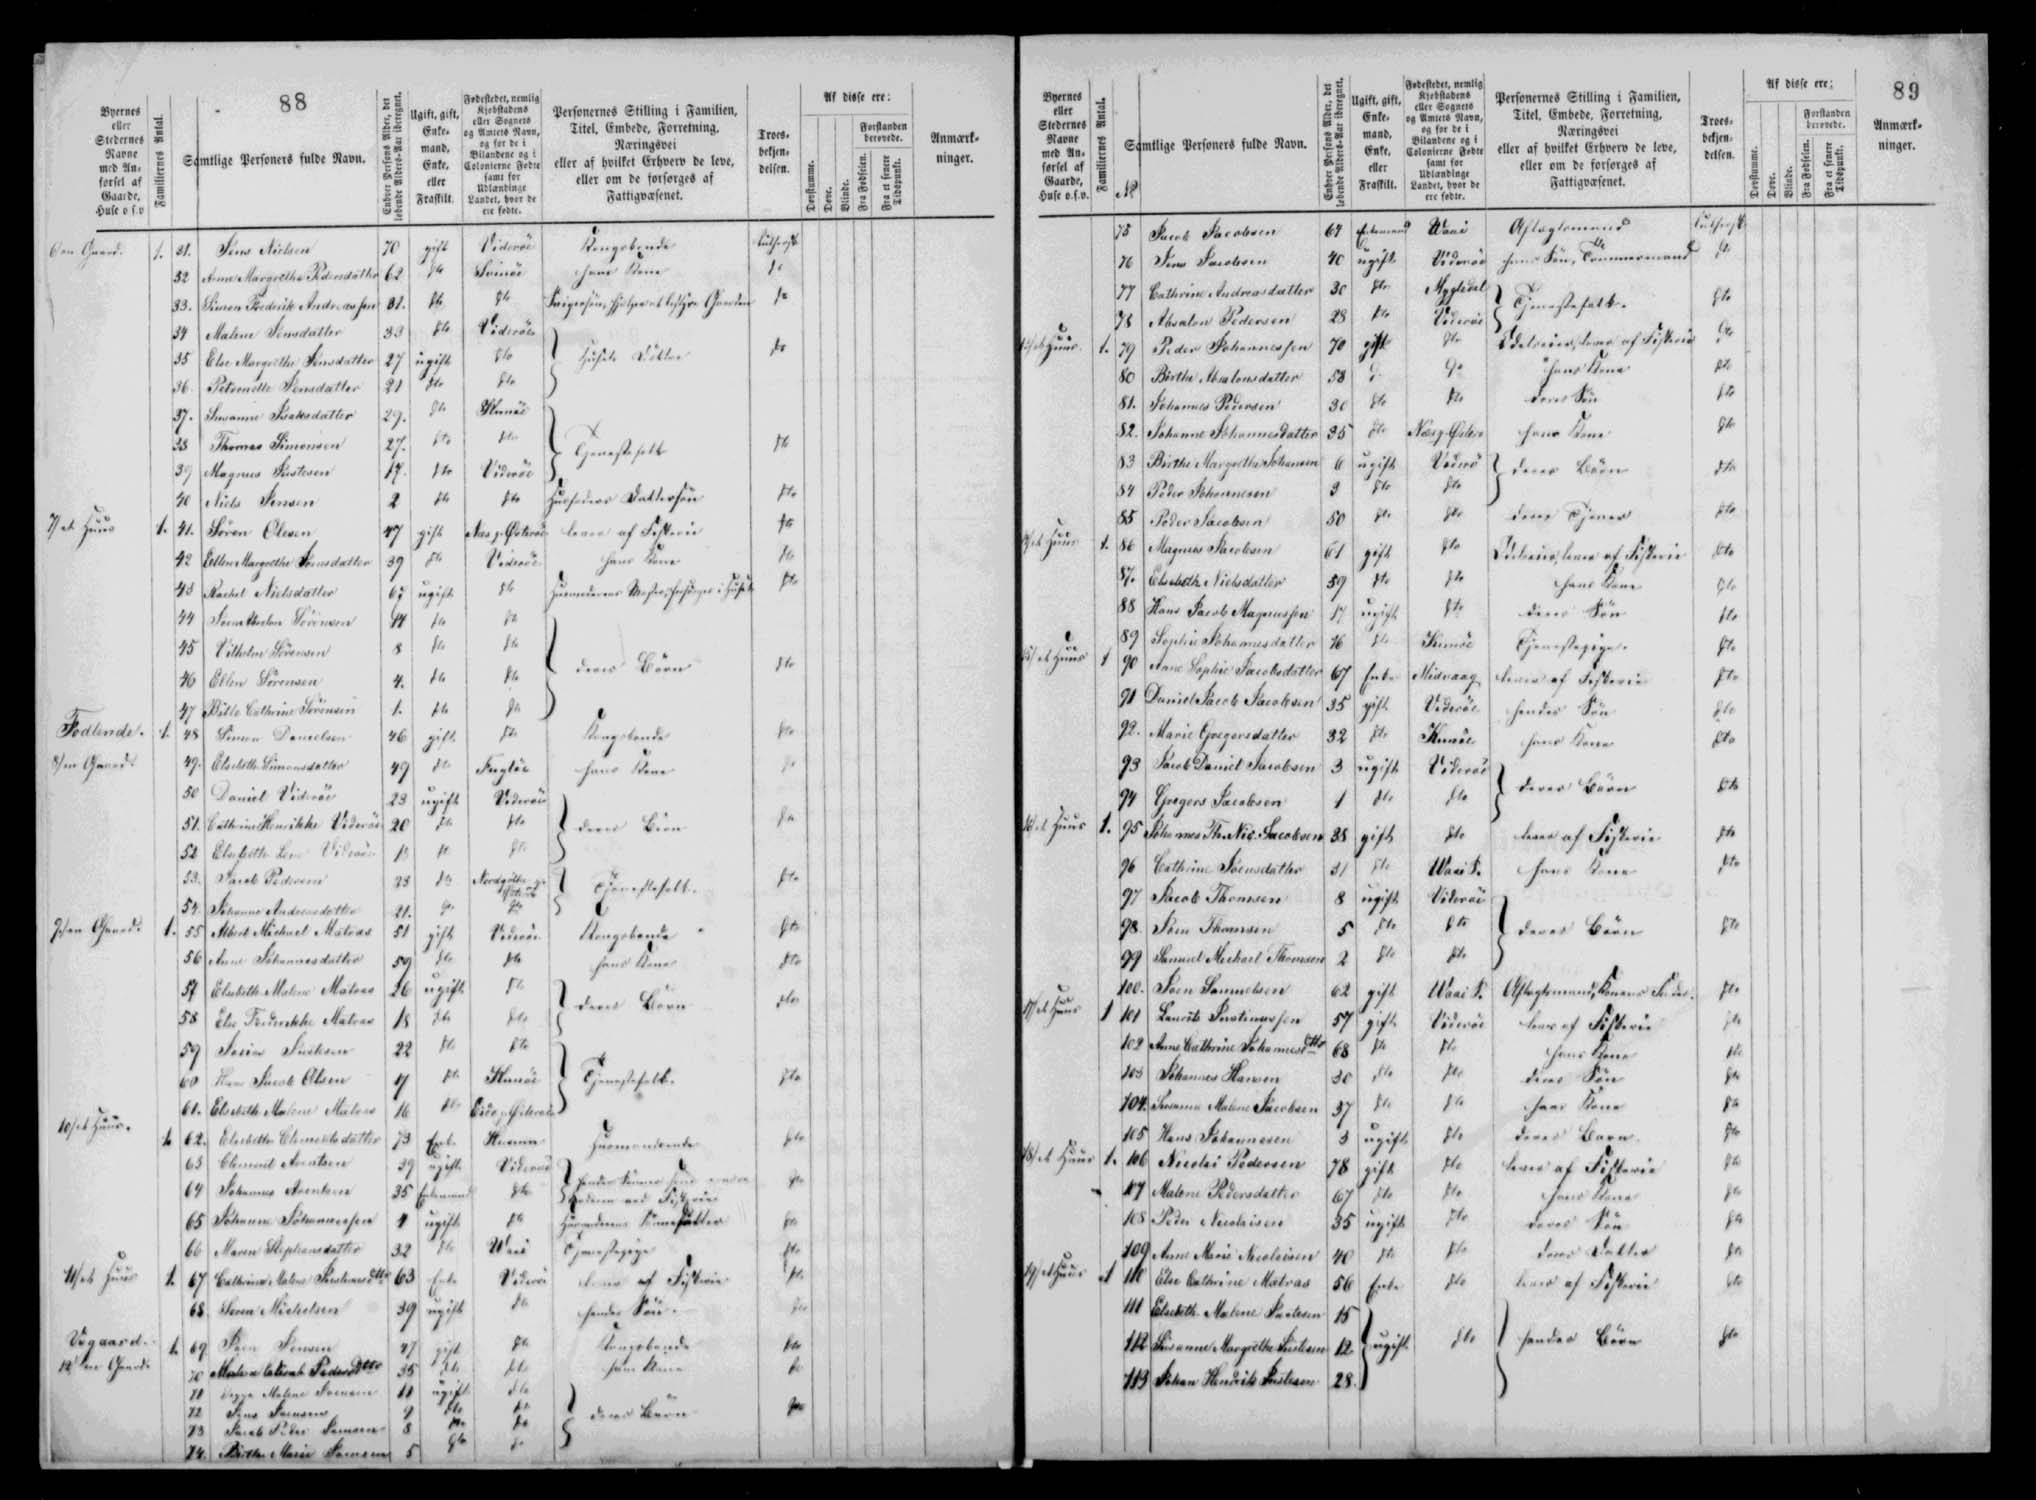 88
Byernes eller Stedernes Navne med Anførsel af Gaarde, Huse o. s. v
Familiernes Antal.
Samtlige Personers fulde Navn.
Enhver Persons Alder, det løbende Alders-Aar iberegnet.
Ugift, gift, Enkemand, Enke, eller Fraskilt.
Fødestedet, nemlig Kjøbstadens eller Sognets og Amtets Navn, og for de i Bilandene og i Colonierne Fødte samt for Udlændinge Landet, hvor de ere fødte.
Personernes Stilling i Familien, Titel, Embede, Forretning, Næringsvei eller af hvilket Erhverv de leve, eller om de forsørges af Fattigvæsenet.
Troesbekjendelsen.
Af disse ere:
Døvstumme.
Døve.
Blinde.
Forstanden berøvede.
Fra Fødselen.
Fra et senere Tidspunkt.
Anmærkninger.
6 en Gaard. 1. 31. Jens Nielsen 70 gift Viderøe Kongsbonde Luthersk
32 Anne Margrethe Pedersdatter 62 dto Svinøe hans Kone do
33. Simon Frederik Andreassen 31. dto dto
34 Malene Jensdatter 33 dto Viderøe
35 Else Margrethe Jensdatter 27 ugift dto Husets Døttre dto
36. Petronelle Jensdatter 21 dto dto
37. Susanne Isaksdatter 29. dto Kunøe
38 Thomas Simonsen 27. dto dto Tjenestefolk dto
39 Magnus Justesen 17. dto Viderøe
40 Niels Jensen 2 dto dto Husfaders Dattersøn dto
7/ et Huus 1. 41. Søren Olesen 47 gift lever af Fiskerie dto
42 Ellen Margrethe Jensdatter 39 dto Viderøe hans Kone dto
43 Rachel Nielsdatter 65 ugift dto dto
44 Sørensen 14 dto dto
45 Vilhelm Sørensen 8 dto dto
46 Ellen Sørensen 4. dto dto deres Børn dto
47 Bille Cathrine Sørensen 1. dto dto
Fødlende. 1. 48 Simon Danielsen 46 gift dto Kongsbonde dto
8/ en Gaard. 49. Elsebeth Simonsdatter 49 dto Fugløe hans Kone
50 Daniel Viderøe 23 ugift Viderøe
51. Cathrine Henrikke Viderøe 20 dto dto deres Børn dto
52 Elsebeth Lene Viderøe dto dto
53. Jacob Pedersen 23 dto Tjenestefolk. dto
54. Johanne Andreasdatter 21. do do
9/ en Gaard. 1. 55 Albert Michael Matras 51 gift Viderøe Kongsbonde dto
56 Anne Johannesdatter 59 dto dto hans Kone dto
57 Elsebeth Malene Matras 26 ugift dto deres Børn dto
58 Else Frederikke Matras 18 dto dto
59 Justesen 22 dto dto
60 Hans Jacob Olsen 17 dto Kunøe Tjenestefolk. dto
61. Elsebeth Malene Matras 16 dto
10/ et Huus. 1. 62. Elsebeth Clementsdatter 73 Enke dto
63 Clement Arentsen 39 ugift Viderøe
64 Johannes Arentsen 35 Enkemand dto dto
65 Johanne Johannessen 4 ugift dto dto
66 Maren Stephansdatter 32 dto Waai Tjenestepige dto
11/ et Huus 1. 67 Cathrine Malene Justinus dttr 63 Enke Viderøe lever af Fiskerie dto
68. Søren Michelsen 39 ugift dto hendes Søn dto
Vegaard. 1. 69 Joen Jensen 47 gift dto Kongsbonde dto
12/ en Gaard. 70 Pedersdttr 35 dto dto hans Kone do
71 Malene Joensen 11 ugift dto
72 Jens Joensen 9 dto dto deres Børn dto
73 Jacob Peder Joensen 8 do do
74. Birthe Marie Joensen 5 dto do
89
Byernes eller Stedernes Navne med Anførsel af Gaarde, Huse o. s. v.
Familiernes Antal.
Samtlige Personers fulde Navn.
№
Enhver Persons Alder, det løbende Alders-Aar iberegnet.
Ugift, gift, Enkemand, Enke, eller Fraskilt.
Fødestedet, nemlig Kjøbstadens eller Sognets og Amtets Navn, og for de i Bilandene og i Colonierne Fødte samt for Udlændinge Landet, hvor de ere fødte.
Personernes Stilling i Familien, Titel, Embede, Forretning, Næringsvei eller af hvilket Erhverv de leve, eller om de forsørges af Fattigvæsenet.
Troesbekjendelsen.
Af disse ere:
Døvstumme.
Døve.
Blinde.
Forstanden berøvede.
Fra Fødselen.
Fra et senere Tidspunkt.
Anmærkninger.
75 Jacob Jacobsen 67 Enkemand Waai Aftægtsmand Luthersk
76 Jens Jacobsen 40 ugift Viderøe hans Søn, Tømmermand dto
77 Cathrine Andreasdatter 30 dto Tjenestefolk. dto
78 Absalon Pedersen 28 dto Viderøe
Huus. 1. 79 Peder Johannessen 70 gift dto lever af Fiskerie do
80 Birthe Absalonsdatter 58 do do hans Kone dto
81. Johannes Pedersen 30 dto dto deres Søn dto
82. Johanne Johannesdatter 35 dto hans Kone dto
83 Birthe Margrethe Johansen 6 ugift Viderø deres Børn dto
84 Peder Johannesen 3 dto dto
85 Peder Jacobsen 50 dto dto deres Tjener dto
et Huus 1. 86 Magnus Jacobsen 61 gift dto lever af Fiskerie dto
87. Elsebeth Nielsdatter 59 dto dto hans Kone dto
88 Hans Jacob Magnussen 17 ugift dto deres Søn dto
89 Sophie Johannesdatter 16 dto Kunøe Tjenestepige. dto
15/ et Huus 1 90 Anne Sophie Jacobsdatter 67 Enke Midvaag lever af Fiskerie dto
91 Daniel Jacob Jacobsen 35 gift Viderøe hendes Søn dto
92. Marie Gregersdatter 32 dto Kunøe hans Kone dto
93 Jacob Daniel Jacobsen 3 ugift Viderøe deres Børn dto
94 Gregers Jacobsen 1 dto dto
16/ et Huus 1. 95 Johannes Th. Nic. Jacobsen 38 gift dto lever af Fiskerie dto
96 Cathrine Joensdatter 31 dto Waai S. hans Kone dto
97 Jacob Thomsen 8 ugift Viderøe
98. Joen Thomsen 5 dto dto deres Børn dto
99 Samuel Michael Thomsen 2 dto dto
100. Joen Samuelsen 62 gift Waai S. Aftægtsmand, Konens Fader. dto
17/ et Huus 1 101 Laurits Justinussen 57 gift Viderøe lever af Fiskerie dto
102 Anne Cathrine Johannes dttr 68 dto dto hans Kone dto
103 Johannes Hansen 30 dto dto deres Søn dto
104. Susanne Malene Jacobsen 37 dto dto hans Kone dto
105 Hans Johannesen 3 ugift dto deres Barn. dto
18/ et Huus 1. 106 Nicolai Pedersen 78 gift dto lever af Fiskerie dto
107 Malene Pedersdatter 67 dto dto hans Kone dto
108 Peder Nicolaisen 35 ugift dto deres Søn dto
109 Anne Marie Nicolaisen 40 dto dto deres Datter dto
19/ et Huus 1 110 Else Cathrine Matras 56 Enke dto lever af Fiskerie dto
111 Elsebeth Malene Justesen 15
112 Susanne Margrethe Justesen 12. ugift dto hendes Børn dto
113 Johan Hendrik Justesen 28.